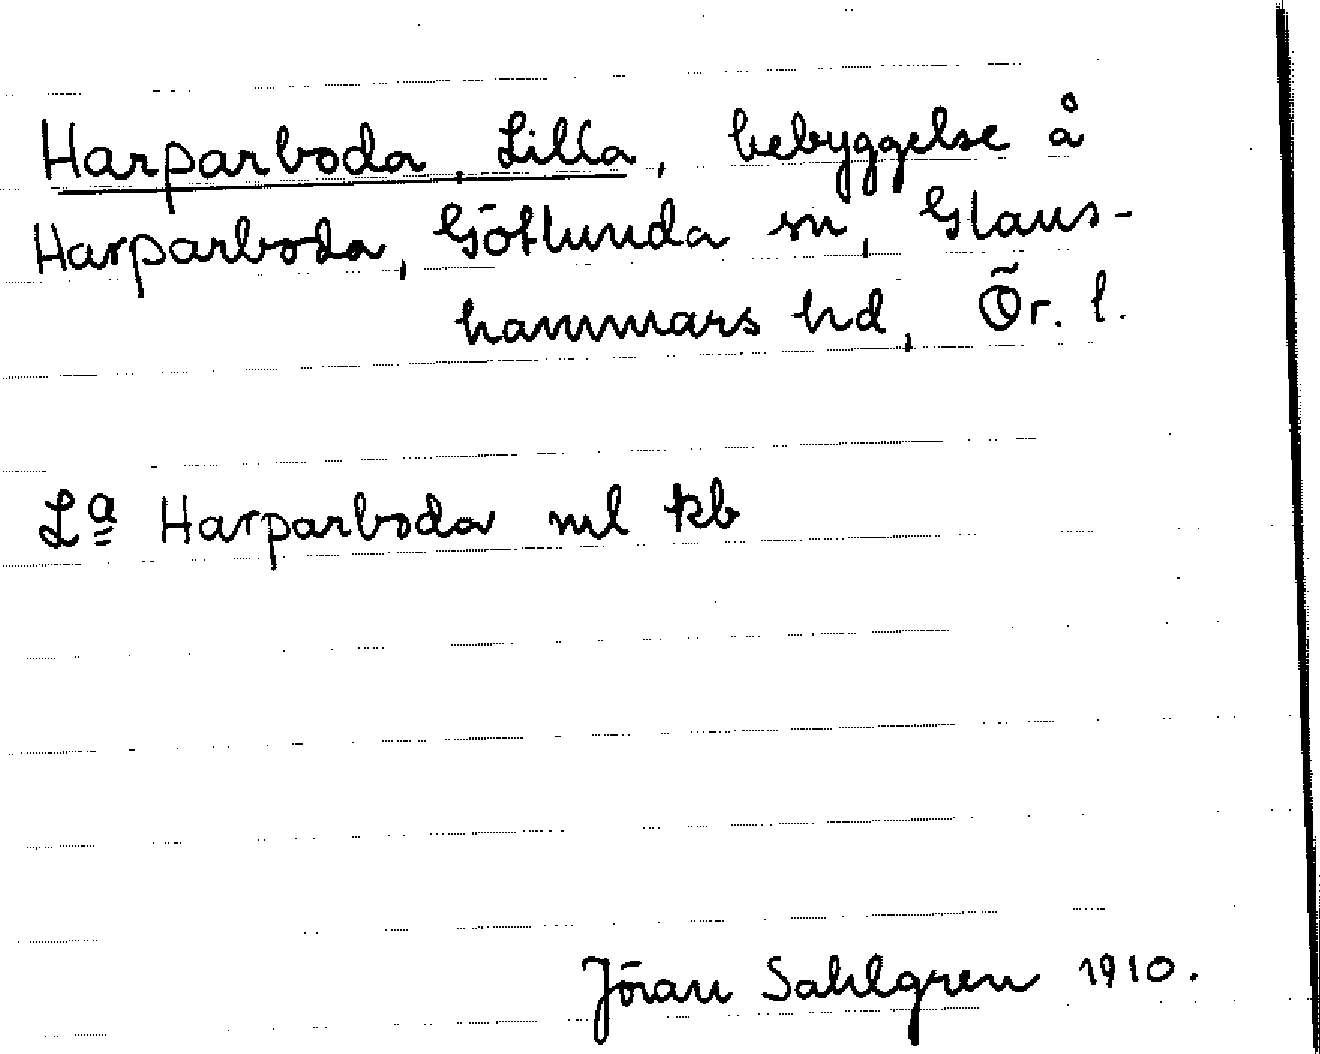 Harparboda, Lilla, bebyggelse å
Harparboda, Götlunda sn, Glans-
hammars hd, Ör. l.
Lª Harparboda ml kb
Jöran Sahlgren 1910.